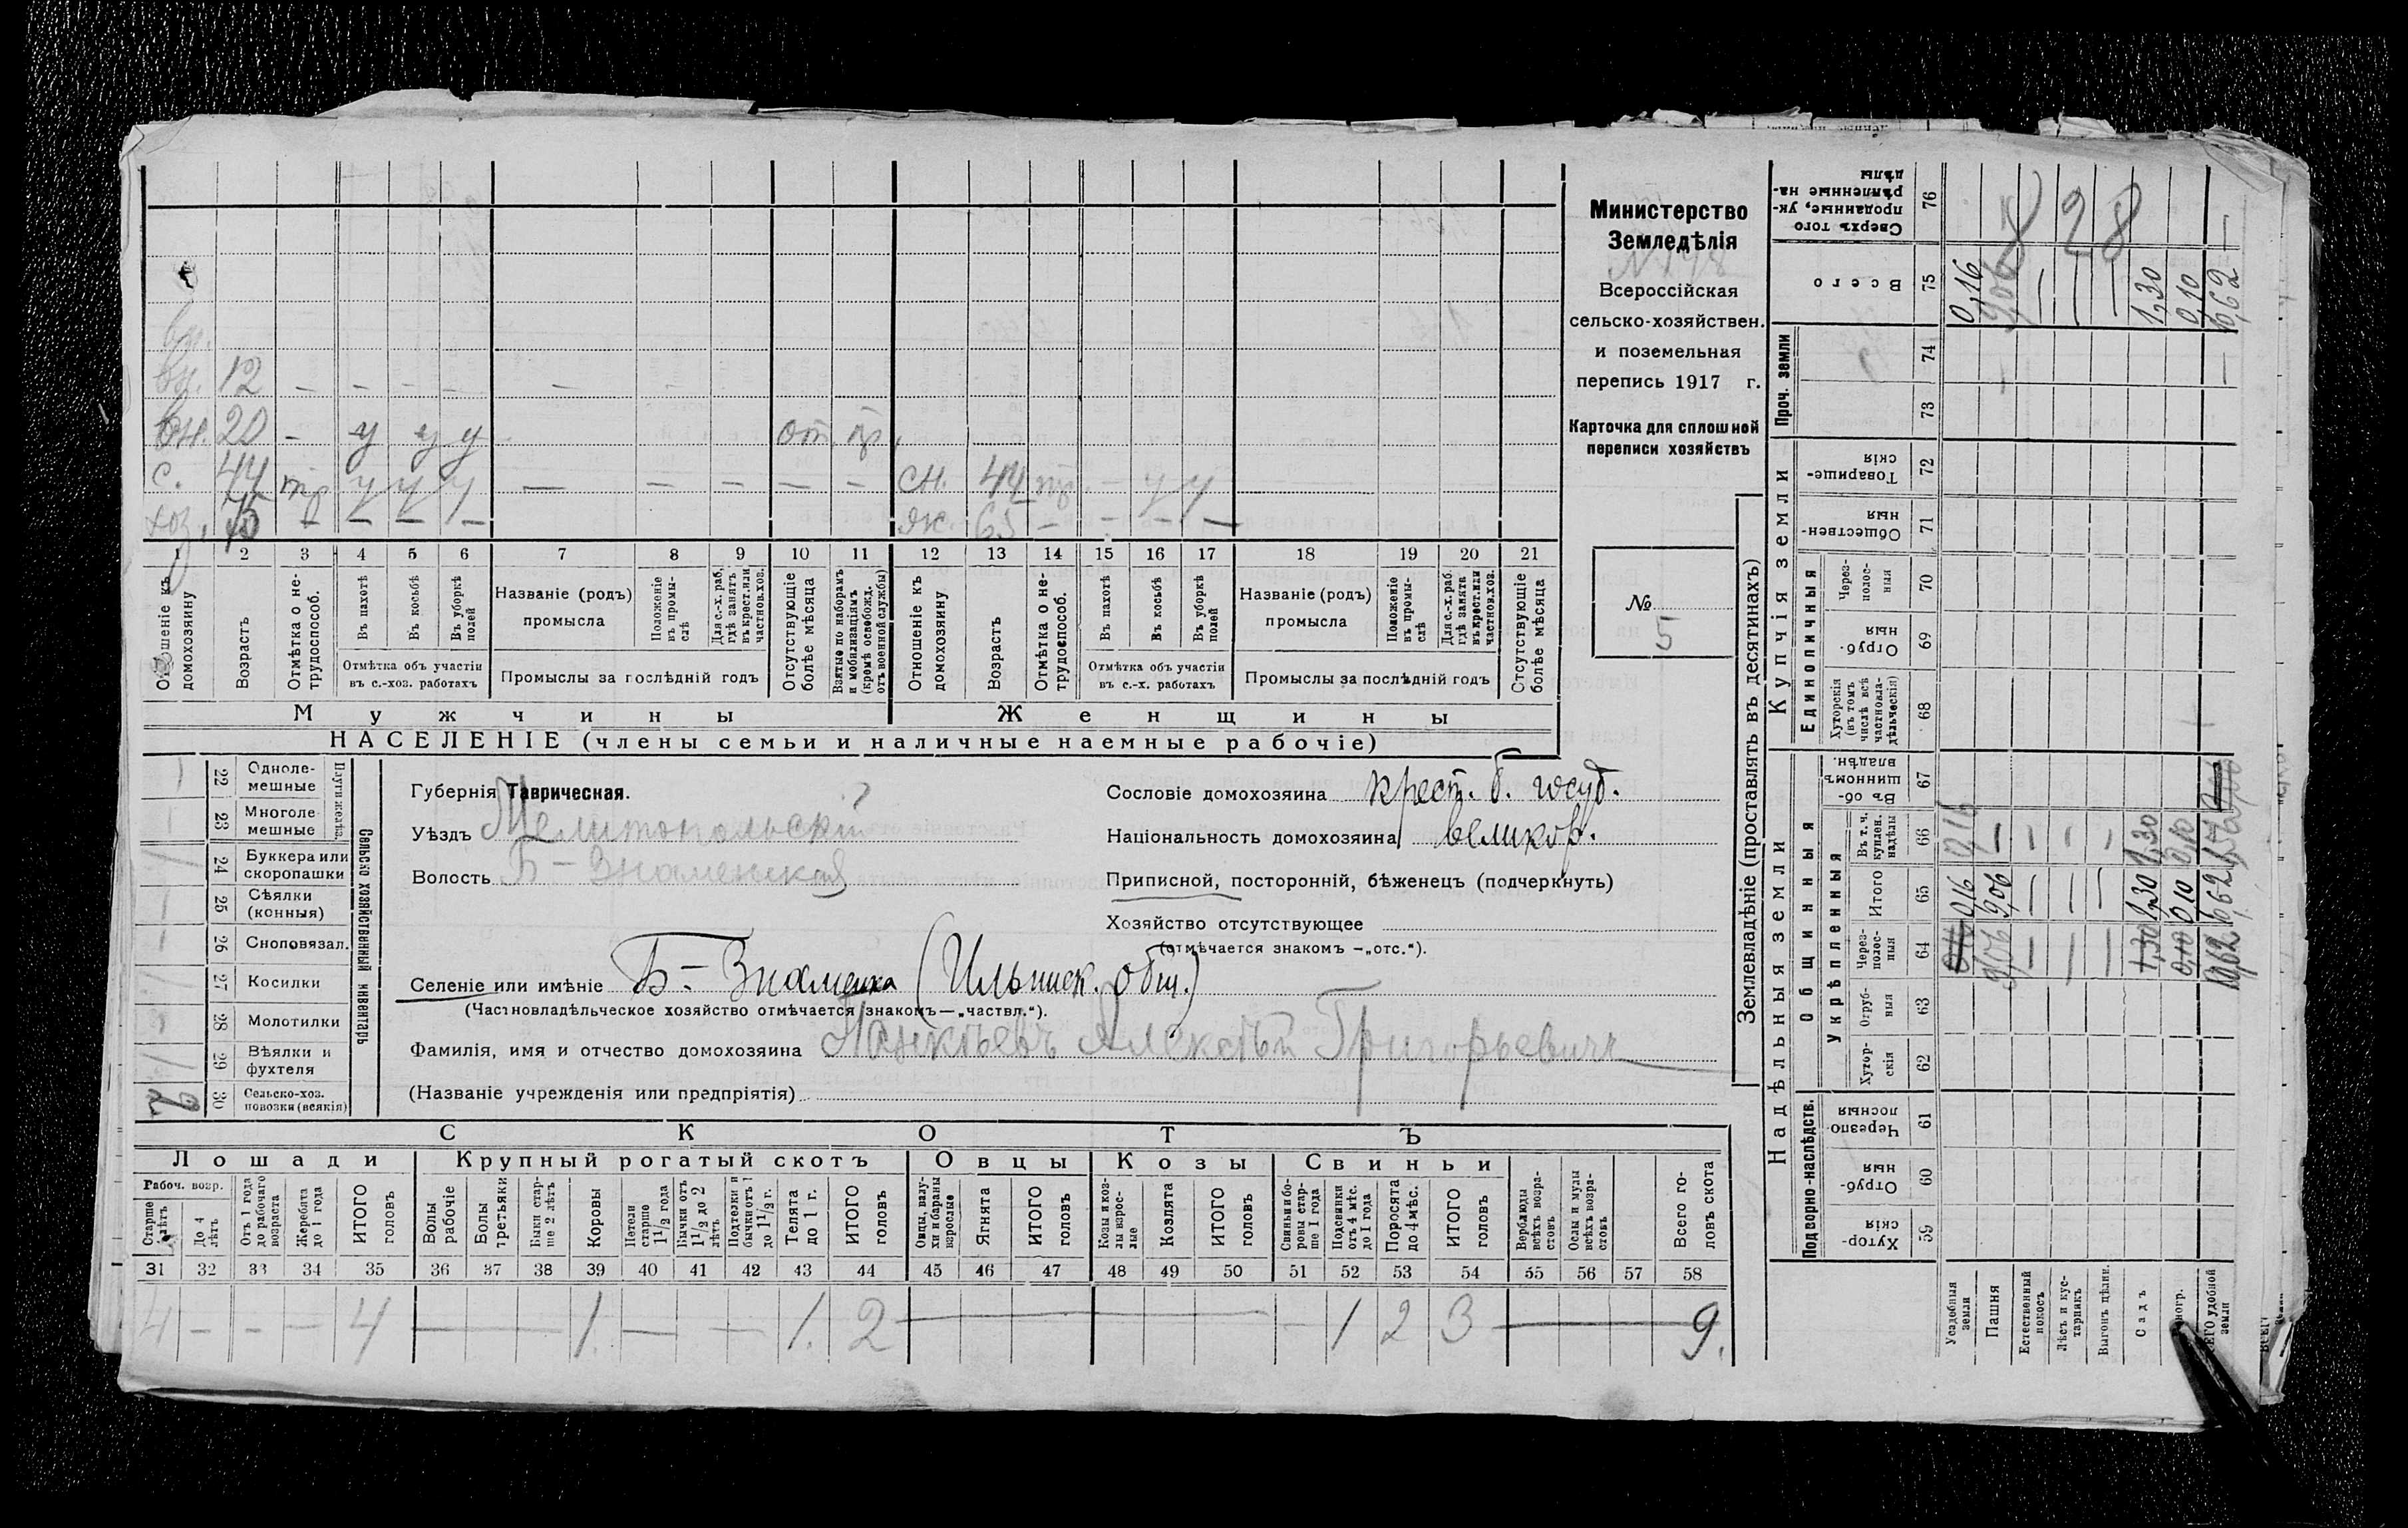 Министерство
Земледѣлія
Всероссійская
сельско-хозяйствен.
и поземельная
перепись 1917 г.
Карточка для сплошной
переписи хозяйствъ
№
5
вн. 12 – – – – – –
вн. 20 – у у у от. пр.
с. 44 тр у у у — – – – – сн. 44 – у у
хоз. – – – – як. 65 – – – –
1 2 3 4 5 6 7 8 9 10 11 12 13 14 15 16 17 18 19 20 21
Отношеніе къ домохозяину
Возрастъ
Отмѣтка о нетрудоспособ.
Въ пахотѣ
Въ косьбѣ
Въ уборкѣ полей
Отмѣтка объ участіи въ с.-хоз. работахъ
Названіе (родъ) промысла
Положеніе въ промыслѣ
Для с.-х. раб. гдѣ занятъ въ крест. или частнов. хоз.
Промыслы за послѣдній годъ
Отсутствующіе болѣе мѣсяца
Взятые по наборамъ и мобилизаціямъ (кромѣ освобожд. отъ военной службы)
Отношеніе къ домохозяину
Возрастъ
Отмѣтка о нетрудоспособ.
Въ пахотѣ
Въ косьбѣ
Въ уборкѣ полей
Отмѣтка объ участіи въ с.-х. работахъ
Названіе (родъ) промысла
Положеніе въ промыслѣ
Для с.-х. раб. гдѣ занята въ крест. или частнов. хоз.
Промыслы за послѣдній годъ
Отсутствующіе болѣе мѣсяца
Мужчины Женщины
НАСЕЛЕНІЕ (члены семьи и наличные наемные рабочіе)
Сельско хозяйственный инвентарь
22 Однолемешные
23 Многолемешные
24 Буккера или скоропашки
25 Сѣялки (конныя)
26 Сноповязал.
27 Косилки
28 Молотилки
29 Вѣялки и фухтеля
30 Сельско-хоз. повозки (всякія) 2
Губернія Таврическая.
Уѣздъ Мелитопольскій
Волость Б-Знаменская
Сословіе домохозяина крест. б. госуд.
Національность домохозяина великор.
Приписной, посторонній, бѣженецъ (подчеркнуть)
Хозяйство отсутствующее
(отмѣчается знакомъ –„отс.“).
Селеніе или имѣніе Б-Знаменка (Ильинск. общ.)
(Частновладѣльческое хозяйство отмѣчается знакомъ—„частвл.“).
Фамилія, имя и отчество домохозяина Алексѣй Григорьевичъ
(Названіе учрежденія или предпріятія)
СКОТЪ
Лошади Крупный рогатый скотъ Овцы Козы Свиньи
Рабоч. возр.
Старше 4 лѣтъ
До 4 лѣтъ
Отъ 1 года до рабочаго возраста
Жеребята до 1 года
ИТОГО головъ
Волы рабочіе
Волы третьяки
Быки старше 2 лѣтъ
Коровы
Нетели старше 1½ года
Бычки отъ 1½ до 2 лѣтъ
Подтелки и бычки отъ 1 до 1½ г.
Телята до 1 г.
ИТОГО головъ
Овцы, валухи и бараны взрослые
Ягнята
ИТОГО головъ
Козы и козлы взрослые
Козлята
ИТОГО головъ
Свиньи и боровы старше 1 года
Подсвинки отъ 4 мѣс. до 1 года
Поросята до 4 мѣс.
ИТОГО головъ
Верблюды всѣхъ возрастовъ
Ослы и мулы всѣхъ возрастовъ
Всего головъ скота
31 32 33 34 35 36 37 38 39 40 41 42 43 44 45 46 47 48 49 50 51 52 53 54 55 56 57 58
4 – – – 4 — 1. — – 1. 2 — – 1 2 3 — 9.
Землевладѣніе (проставлять въ десятинахъ)
Надѣльныя земли Купчія земли Проч. земли
Подворно-наслѣдств. Общинныя Единоличныя
Укрѣпленныя
Хуторскія 59
Отрубныя 60
Черезполосныя 61
Хуторскія 62
Отрубныя 63
Черезполосныя 64
Итого 65
Въ т. ч. куплен. надѣлы 66
Въ общинномъ владѣн. 67
Хуторскія (въ томъ числѣ всѣ частновладѣльческія) 68
Отрубныя 69
Черезполосныя 70
Общественныя 71
Товарищескія 72
73
74
Всего 75
Сверхъ того проданные, укрѣпленные надѣлы 76
Усадебныя земли 0,16 0,16 0,16
Пашня 9,06 9,06
Естественный покосъ
Лѣсъ и кустарникъ
Выгонъ цѣлин.
Садъ 1,30 1,30 1,30 1,30
0,10 0,10 0,10 0,10
удобной земли 10,62 10,62 10,62
828